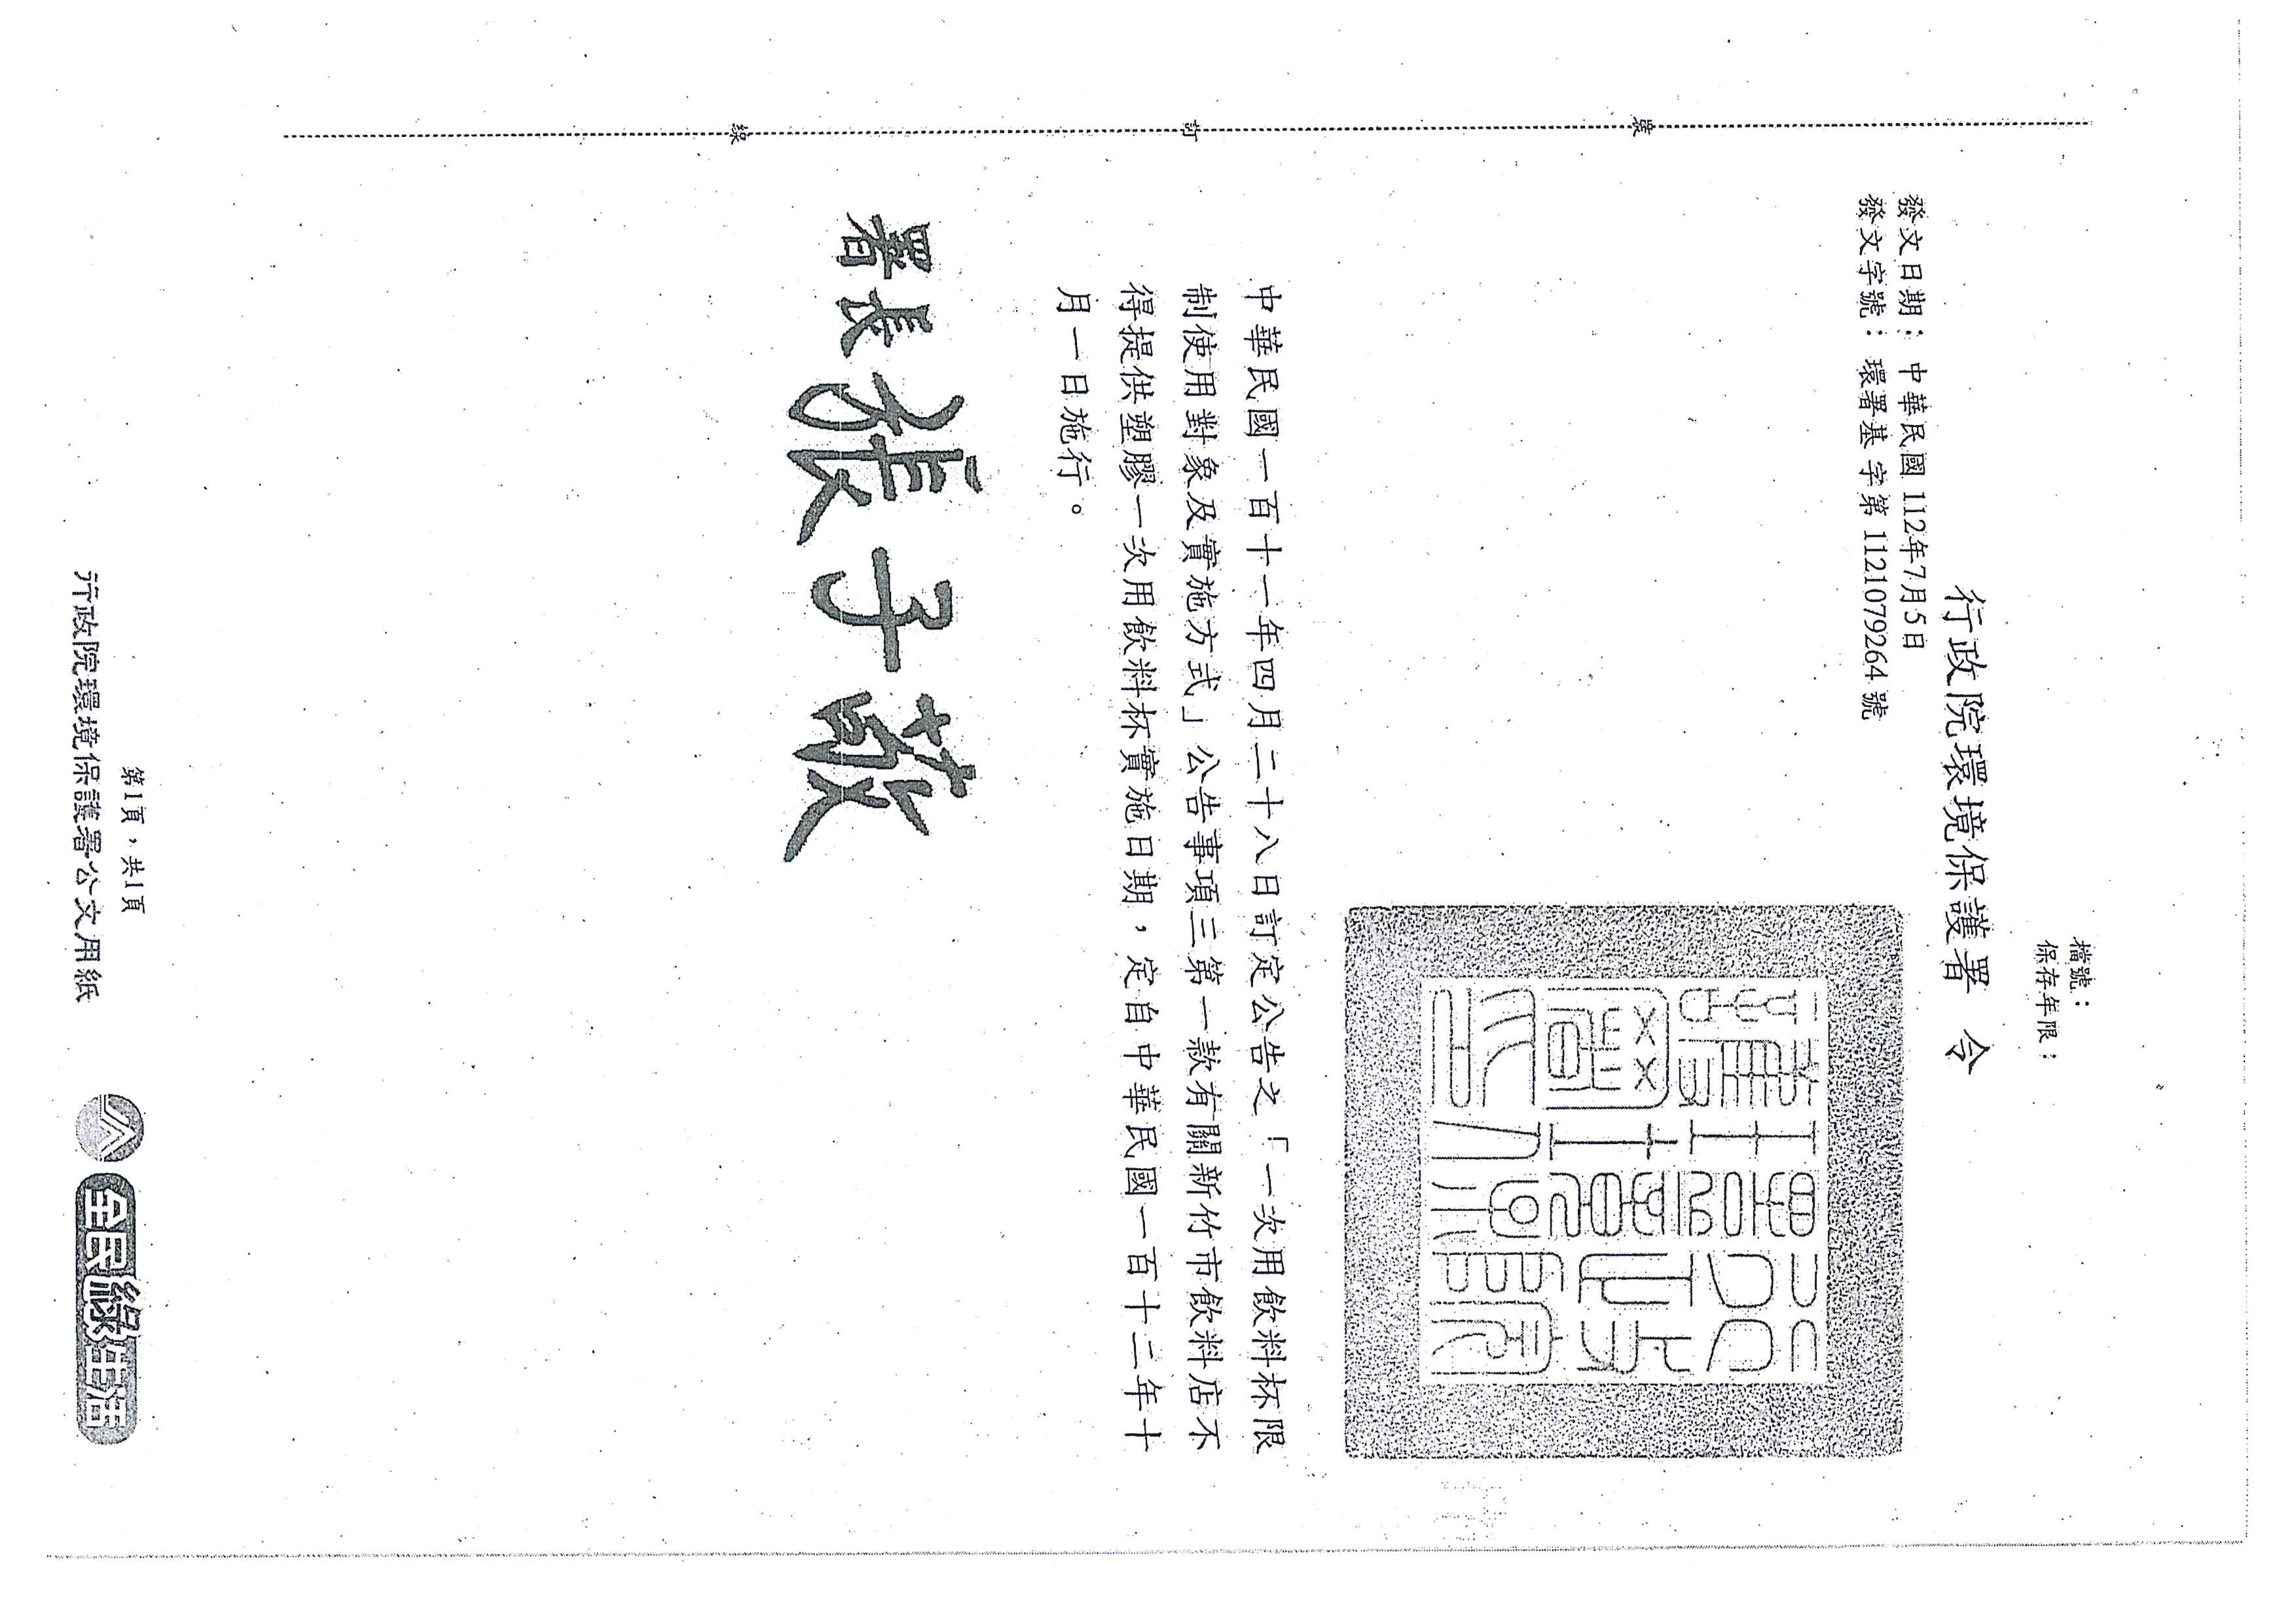 檔號：
保存年限：
行政院環境保護署 令
發文日期：中華民國 112年7月5日
發文字號：環署基字第 1121079264 號
中華民國一百十一年四月二十八日訂定公告之「一次用飲料杯限
制使用對象及實施方式」公告事項三第一款有關新竹市飲料店不
得提供塑膠一次用飲料杯實施日期，定自中華民國一百十二年十
月一日施行。
署長張子敬
裝
訂
線
第1頁，共1頁
行政院環境保護署公文用紙
全民綠生活